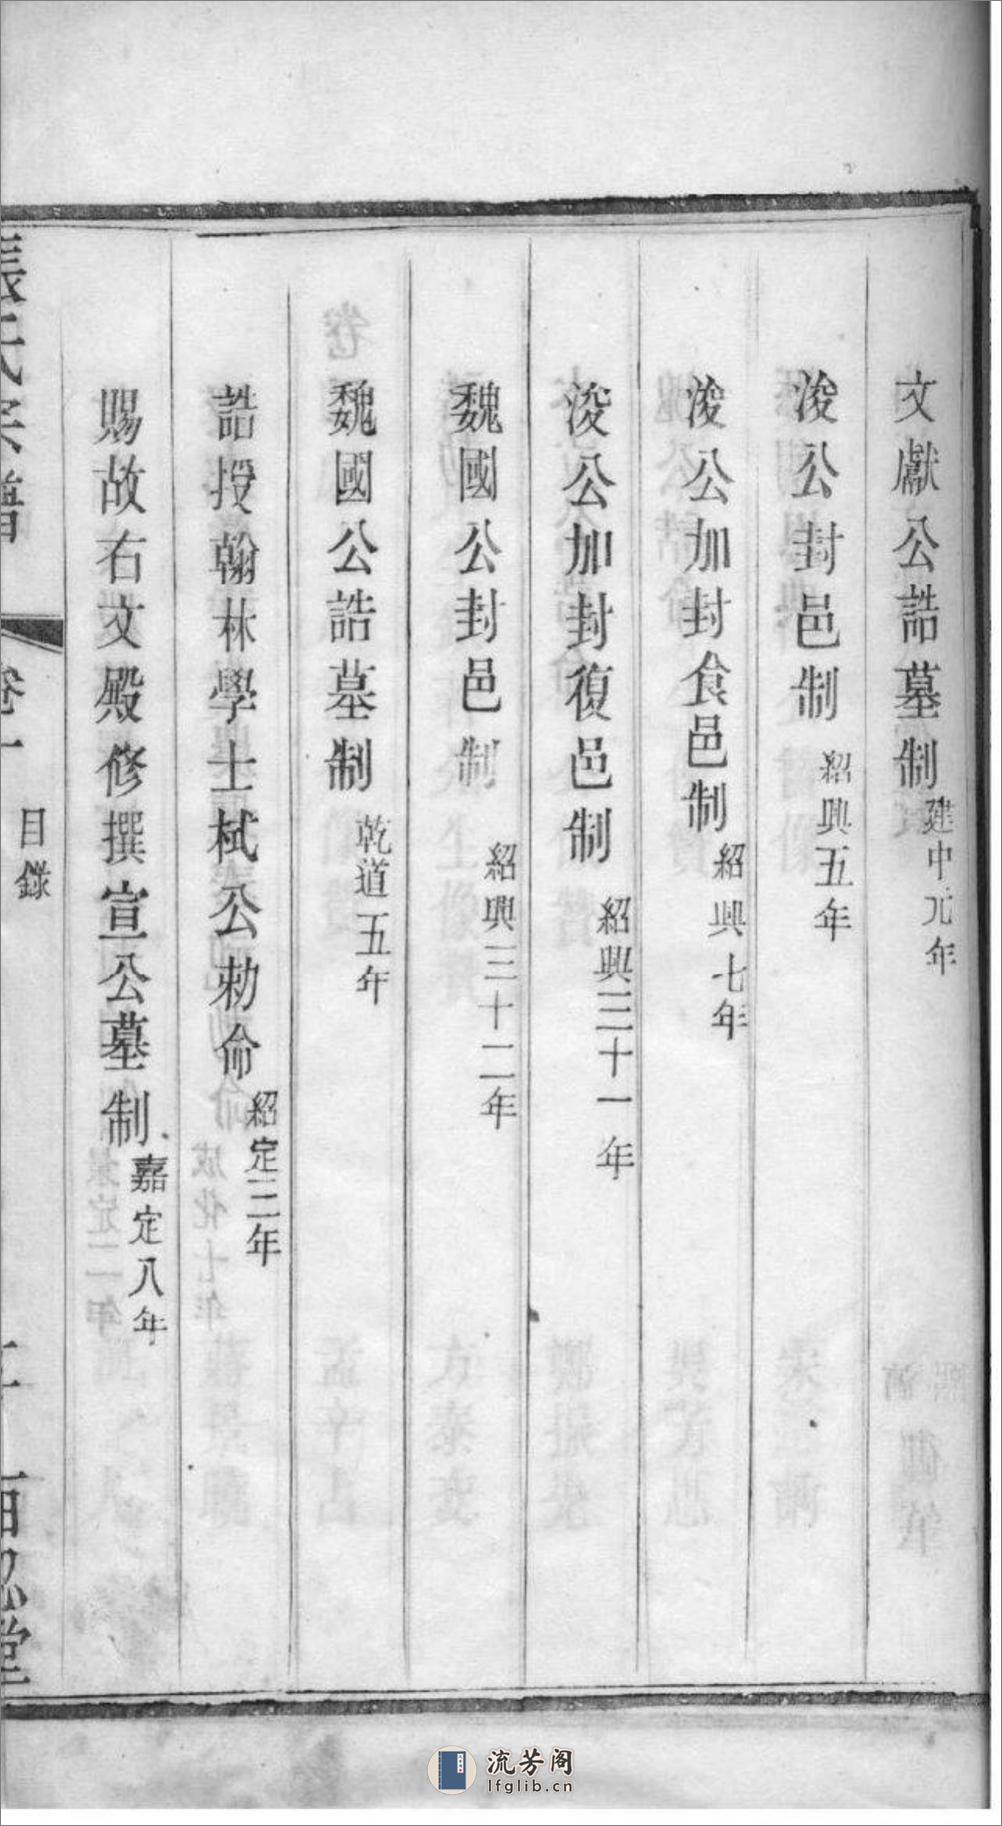 文獻公誥墓制 建中元年
浚公封邑制 紹興五年
浚公加封食邑制 紹興七年
浚公加封復邑制 紹興三十一年
魏國公封邑制 紹興三十二年
魏國公誥墓制 乾道五年
誥授翰林學士栻公勅命 紹定三年
賜故右文殿修撰宣公墓制 嘉定八年
張氏宗譜 卷一 目錄 百忍堂
流芳阁
lfglib.cn